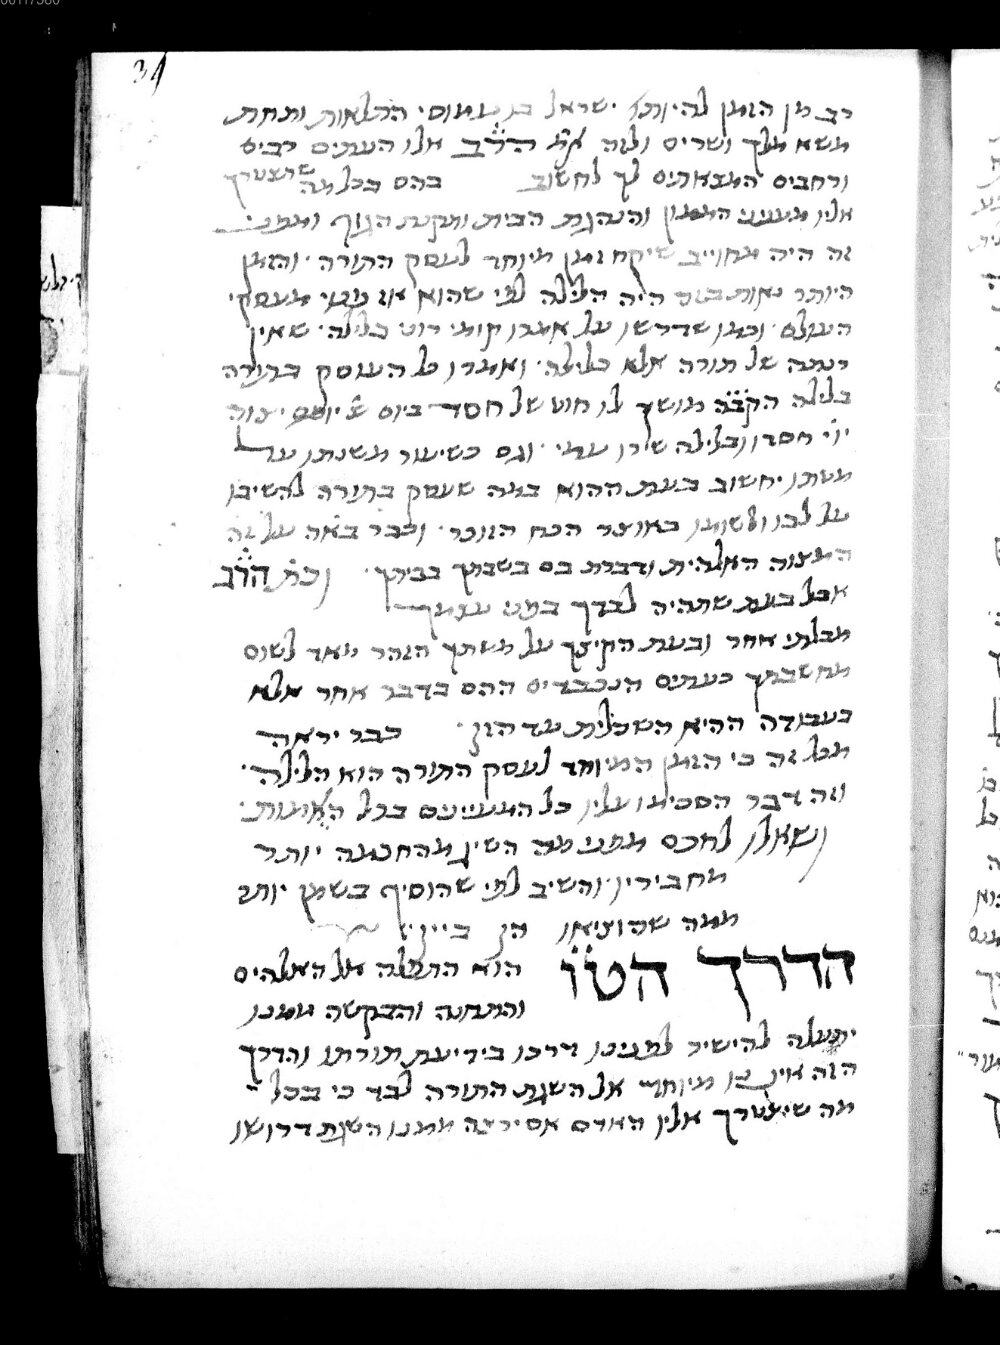 34
רב מן הזמן לה יותר ישראל בני עמוס התלאות ותחת
משא מלך ושרים ולזה את הרב אלו העתים רבים
ורחבים המצאתים לך לחשוב בהם בכל מה שתצטרך
אליו מעניני הממון והנהגת הבית ותקנת הגוף ומפני
זה היה מחוייב שיקח זמן מיוחד לעסק התורה והזמן
היותר נאות בזה היה הלילה לפי שהוא אז פנוי מעסקי
העולם וכמו שדרשו על אמרו קומי רוני בלילה שאין
רנתה של תורה אלא בלילה ואמרו כל העוסק בתורה
בלילה הקבה מושך לו חוט של חסד ביום שנ יומם יצוה
יוי חסדו ובלילה שירו עמי וגם כשיעור משנתו על
מטתו יחשוב בעת ההוא במה שעסק בתורה להשיבו
על לבו ולשומו באוצר הכח הזוכר וכבר באה על זה
המצוה האלהית ודברת בם בשבתך בביתך וכת הרב
אבל בעת שתהיה לבדך במני עצמך
מבלתי אחר ובעת הקיצך על משתך הזהר מאד לשום
מחשבתך בעתים הנכבדים ההם בדבר אחר אלא
בעבודה ההיא השכלית עד הנה כבר יראה
מכל זה כי הזמן המיוחד לעסק התורה הוא הלילה
וזה דבר הסכימו עליו כל המעיינים בכל האומות
ושאלו לחכם מפני מה השיג מהחכמה יותר
מחביריו והשיב לפי שהוסיף בשמן יותר
ממה שהוציאו הן ביין
הדרך הטו הוא התפלה אל האלהים
והתחנה והבקשה ממנו
יתעלה להישיר למנינו דרכו בידיעת תורתו והדרך
הזה אינו מיוחד אל השגת התורה לבד כי בכל
מה שיצטרך אליו האדם אם ירצה ממנו השגת דרושו